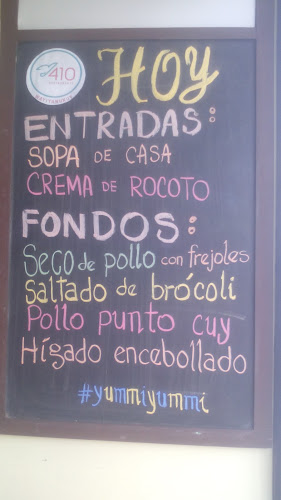 410
HOY
ENTRADAS:
SOPA DE CASA
CREMA DE ROCOTO
FONDOS:
Seco de pollo con frejoles
Saltado de brócoli
Pollo punto cuy
Hígado encebollado
#yummiyummi